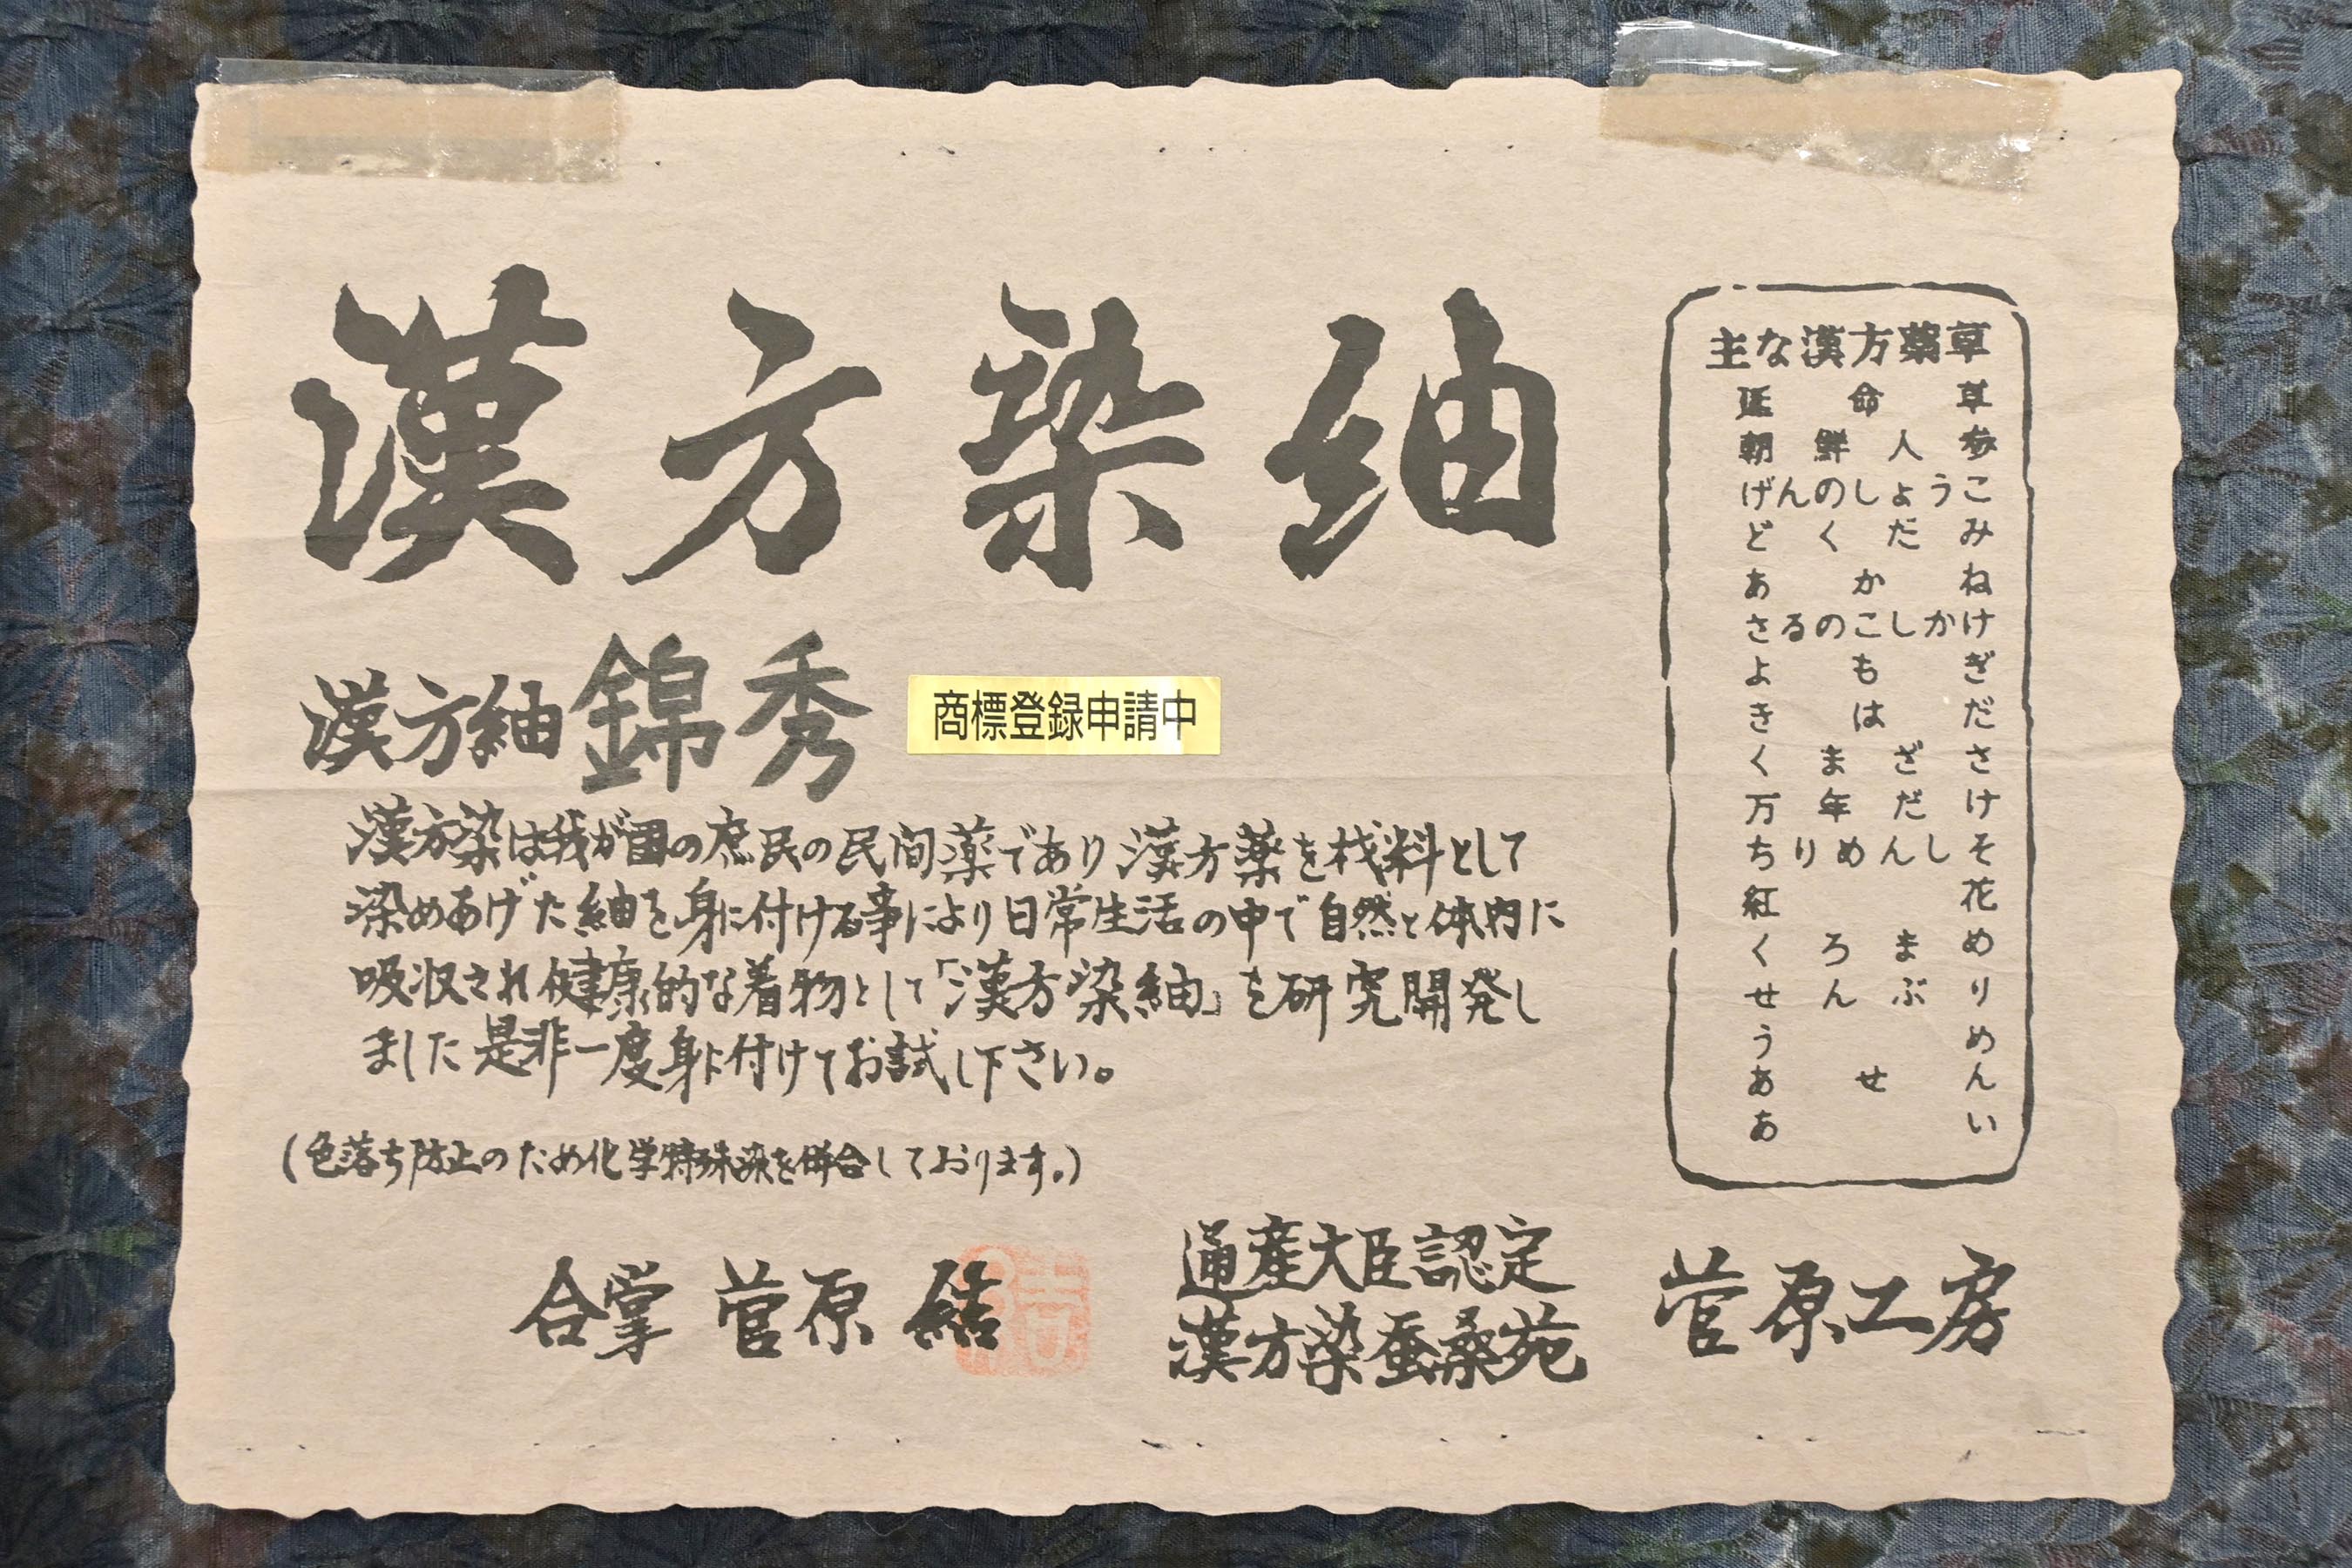 漢方染紬
漢方紬錦秀
商標登録申請中
漢方染は我が国の庶民の民間薬であり漢方薬を材料として
染めあげた紬を身に付ける事により日常生活の中で自然と体内に
吸収され健康的な着物として「漢方染紬」を研究開発し
ました是非一度身に付けてお試し下さい。
(色落ち防止のため化学特殊染を併合しております。)
合掌 菅原 結
通産大臣認定
漢方染蚕桑苑
菅原工房
主な漢方薬草
延命草
朝鮮人参
げんのしょうこ
どくだみ
あかね
さるのこしかけ
よもぎ
きはだ
くまざさ
万年だけ
ちりめんしそ
紅花
くろまめ
せんぶり
うめ
あせん
あい